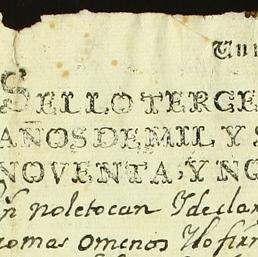 Un
SELLO TERCE
AÑOS DE MIL, Y S
NOVENTA, Y N
noletocan Ydeclar
omas omenos Ylofir